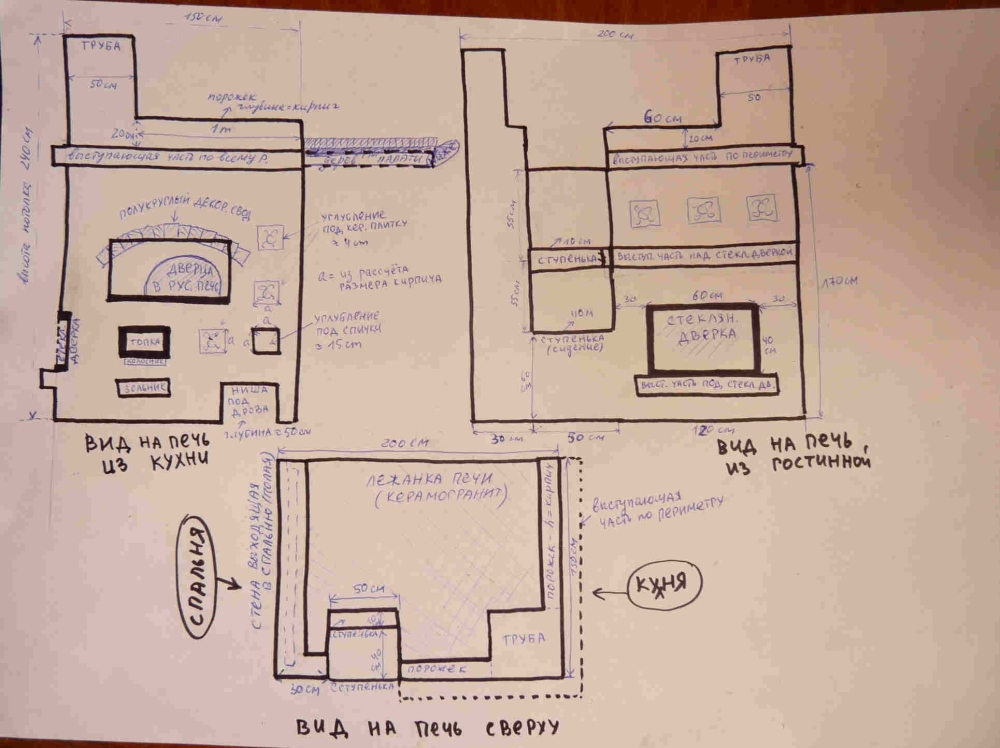 150 см
ТРУБА
50см
порожек
глубина=кирпич
1m
20см
выступающая часть по всему Р.
высота потолка 240см
ПОЛУКРУГЛЫЙ ДЕКОР. СВОД
ДВЕРЦА
В РУС. ПЕЧЬ
УГЛУБЛЕНИЕ
ПОД КЕР. ПЛИТКУ
≈ 4cm
a = из рассчёта
размера кирпича
УГЛУБЛЕНИЕ
ПОД СПИЧКИ
≈ 15cm
ТОПКА
a
a
a
a
ДВЕРКА
ЗОЛЬНИК
НИША
ПОД
ДРОВА
ГЛУБИНА ≈ 50см
ВИД НА ПЕЧЬ
ИЗ КУХНИ
200 см
ТРУБА
50
60см
20см
ВЫСТУПАЮЩАЯ ЧАСТЬ ПО ПЕРИМЕТРУ
55см
10см
СТУПЕНЬКА
ВЫСТУП. ЧАСТЬ НАД СТЕКЛ. ДВЕРКОЙ
55см
30
60см
30
170см
СТЕКЛЯН.
ДВЕРКА
40
см
СТУПЕНЬКА
(сидение)
ВЫСТ. ЧАСТЬ ПОД. СТЕКЛ. ДВ.
30 см
50 см
120 см
ВИД НА ПЕЧЬ
ИЗ ГОСТИННОЙ
200 см
ЛЕЖАНКА ПЕЧИ
(КЕРАМОГРАНИТ)
СТЕНА ВЫХОДЯЩАЯ
В СПАЛЬНЮ (ПОЛАЯ)
СПАЛЬНЯ
ПОРОЖЕК - h = КИРПИЧ
150см
выступающая
часть по периметру
КУХНЯ
50см
СТУПЕНЬКА
ТРУБА
ПОРОЖЕК
30см
ССТУПЕНЬКА
ВИД НА ПЕЧЬ СВЕРХУ